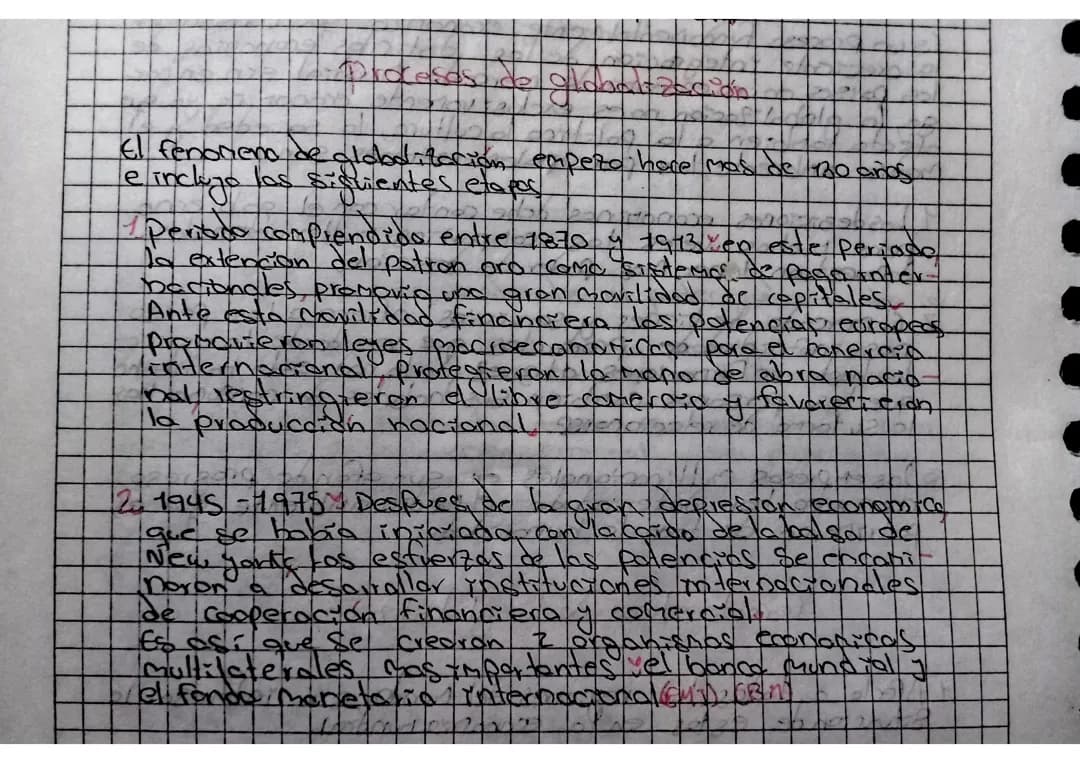 Procesos de globalización
El fenomeno de globalización empezo hace mas de 130 años
e incluye las siguientes etapas
1 Periodo comprendido entre 1870 y 1913 en este periodo,
la extencion del patron oro como sistemas de pago inter-
nacionales, promovio una gran movilidad de capitales.
Ante esta movilidad financiera las potencias europeas
promovieron leyes macroeconomicas para el comercio
internacional, protegieron la mano de obra nacio-
nal, restringieron el libre comercio y favorecieron
la producción nacional.
2. 1945 - 1975 Despues de la gran depresión economica
que se había iniciado con la caida de la bolsa de
New york los esfuerzos de las potencias se encami-
naron a desarrollar instituciones internacionales
de cooperación financiera y comercial.
Es así que se crearon 2 organismos economicos
multilaterales mas importantes el banco mundial y
el fondo monetario internacional (FMI). (BM)